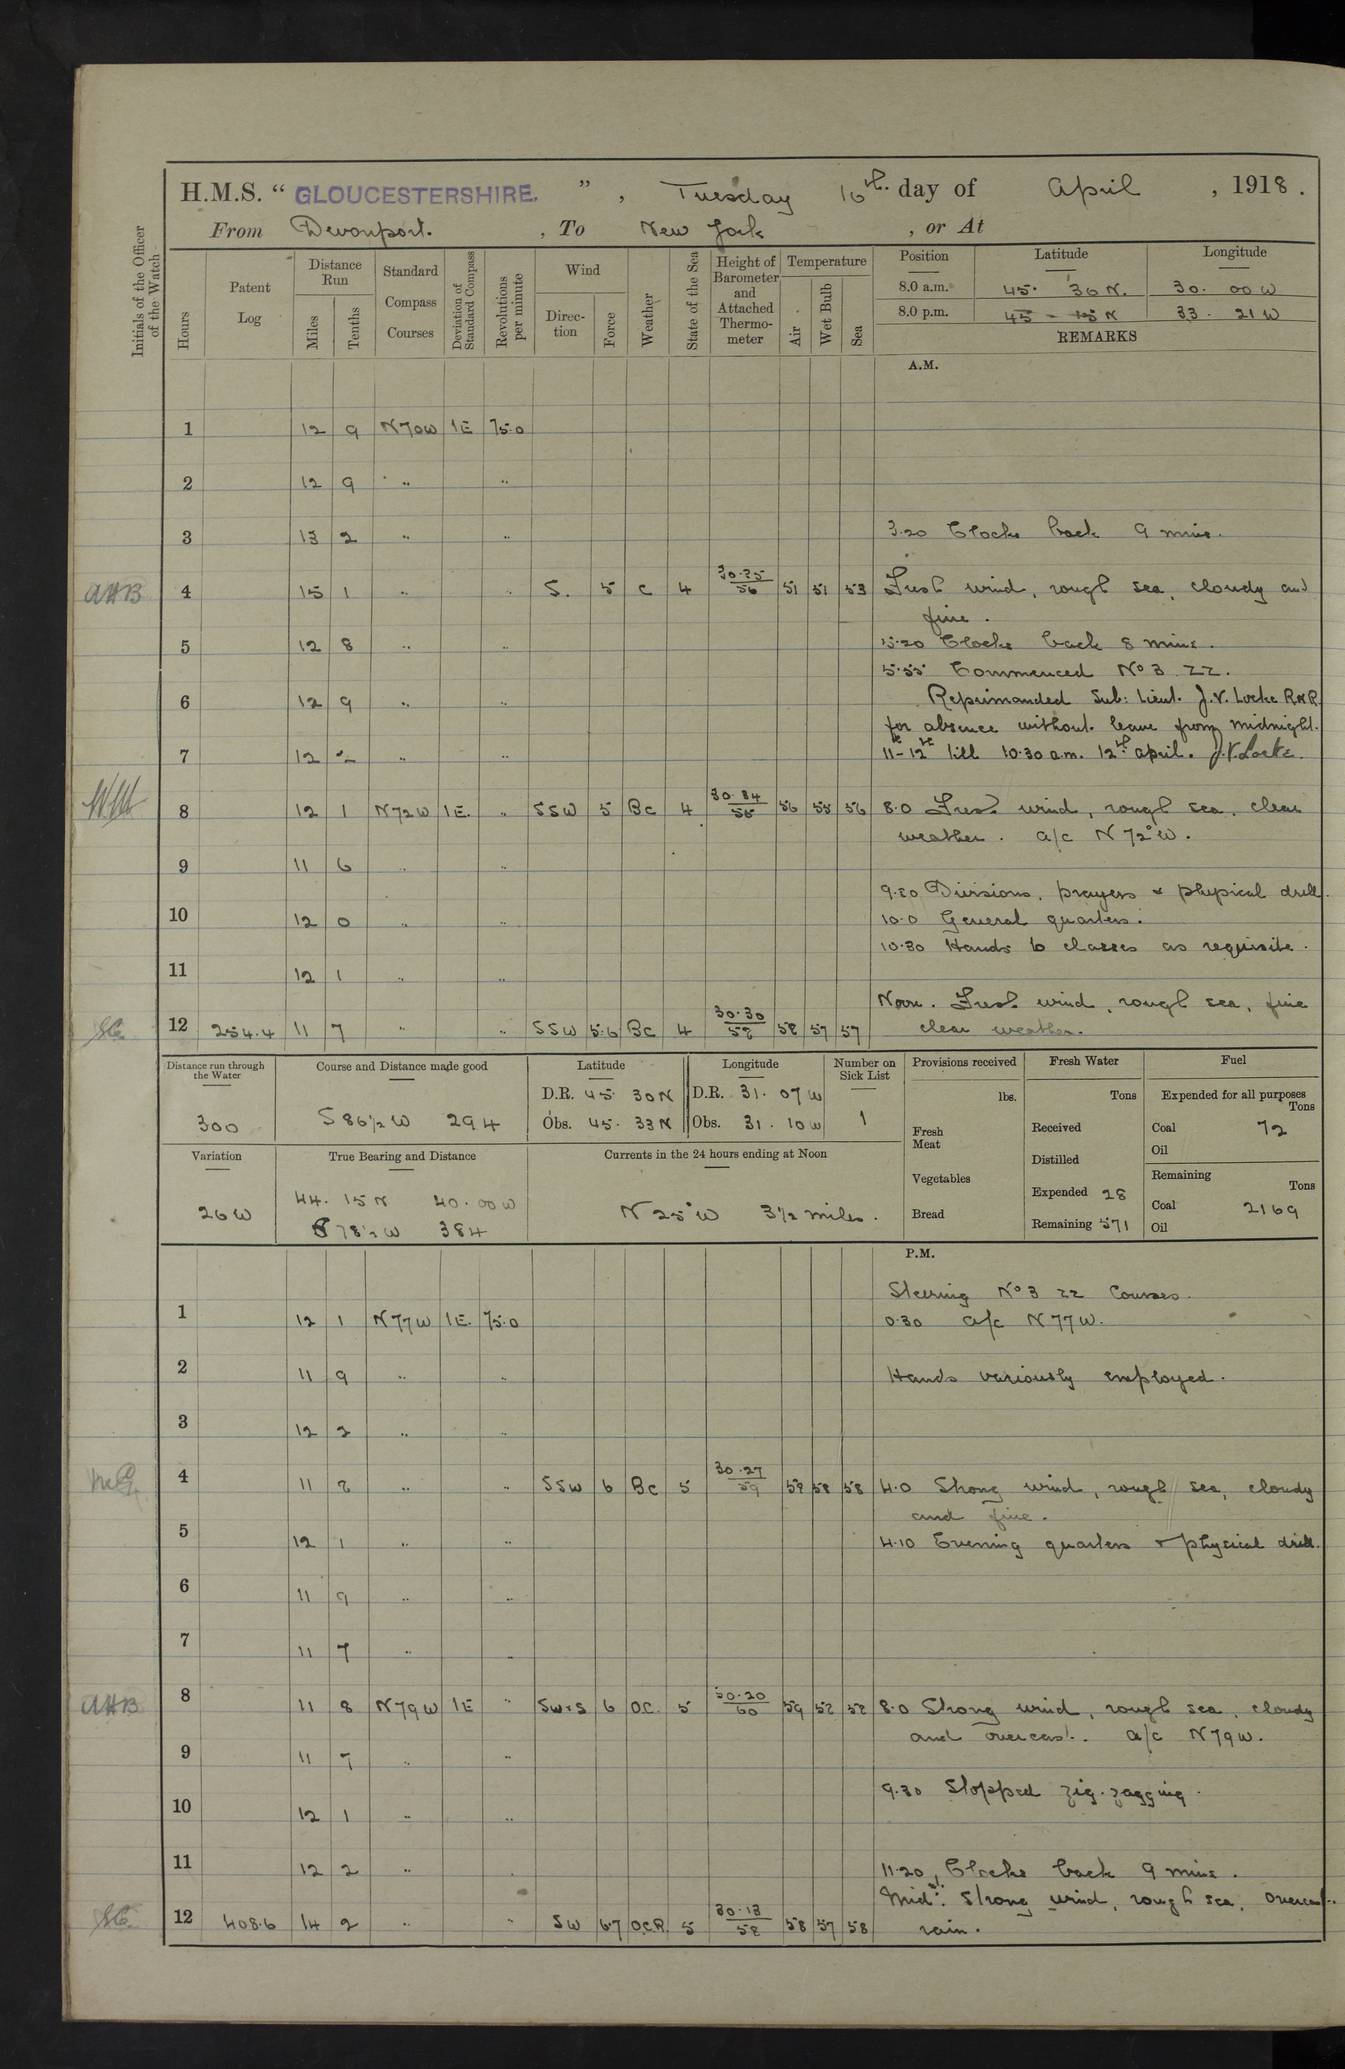 H.M.S. “ GLOUCESTERSHIRE. ” , Tuesday 16th. day of April , 1918 .
From Devonport. , To New York , or At
Initials of the Officer of the Watch
Hours
Patent Log
Distance Run
Miles
Tenths
Standard Compass Courses
Deviation of Standard Compass
Revolutions per minute
Wind
Direction
Force
Weather
State of the Sea
Height of Barometer and Attached Thermometer
Temperature
Air
Wet Bulb
Sea
Position Latitude Longitude
8.0 a.m. 45. 36 N. 30. 00 W
8.0 p.m. 45 - 15 N 33. 21 W
REMARKS
A.M.
1 12 9 N70W 1E 75.0
2 12 9 " "
3 13 2 " " 3.20 Clocks back 9 mins.
AHB 4 15 1 " " S. 5 C 4 30.35/56 51 51 53 Fresh wind, rough sea, cloudy and
fine.
5 12 8 " " 5.20 Clocks back 8 mins.
5.55 Commenced No 3 ZZ.
6 12 9 " " Reprimanded Sub: Lieut. J.V. Locke R.N.R.
for absence without leave from midnight
7 12 2 " " 11th-12th till 10.30 a.m. 12th April. J.V. Locke.
8 12 1 N72W 1E. " SSW 5 BC 4 30.34/55 56 55 56 8.0 Fresh wind, rough sea, clear
weather. a/c N72°W.
9 11 6 " "
9.20 Divisions, prayers & physical drill.
10 12 0 " " 10.0 General quarters.
10.30 Hands to classes as requisite.
11 12 1 " "
Noon. Fresh wind, rough sea, fine
12 254.4 11 7 " " SSW 5.6 BC 4 30.30/58 58 57 57 clear weather.
Distance run through the Water
300
Course and Distance made good
S 86½ W 294
Latitude
D.R. 45. 30 N
Obs. 45. 33 N
Longitude
D.R. 31. 07 W
Obs. 31. 10 W
Number on Sick List
1
Provisions received
lbs.
Fresh Meat
Vegetables
Bread
Fresh Water
Tons
Received
Distilled
Expended 28
Remaining 571
Fuel
Expended for all purposes
Tons
Coal 72
Oil
Remaining
Tons
Coal 2169
Oil
Variation
26 W
True Bearing and Distance
44. 15 N 40. 00 W
S 78½ W 384
Currents in the 24 hours ending at Noon
N 25° W 3½ miles.
P.M.
Steering No 3 ZZ Courses.
1 12 1 N77W 1E. 75.0 0.30 a/c N77W.
2 11 9 " " Hands variously employed.
3 12 2 " "
4 11 8 " " SSW 6 BC 5 30.27/59 58 58 58 4.0 Strong wind, rough sea, cloudy
and fine.
5 12 1 " " 4.10 Evening quarters & physical drill.
6 11 9 " "
7 11 7 " "
AHB 8 11 8 N79W 1E " SW.S 6 O.C. 5 30.20/60 59 58 58 8.0 Strong wind, rough sea, cloudy
and overcast. a/c N79W.
9 11 7 " "
9.30 Stopped zig-zagging.
10 12 1 " "
11 12 2 " 11.20 Clocks back 9 mins.
Midt. Strong wind, rough sea, overcast..
12 408.6 14 2 " " SW 6.7 O.C.R. 5 30.13/58 58 57 58 rain.